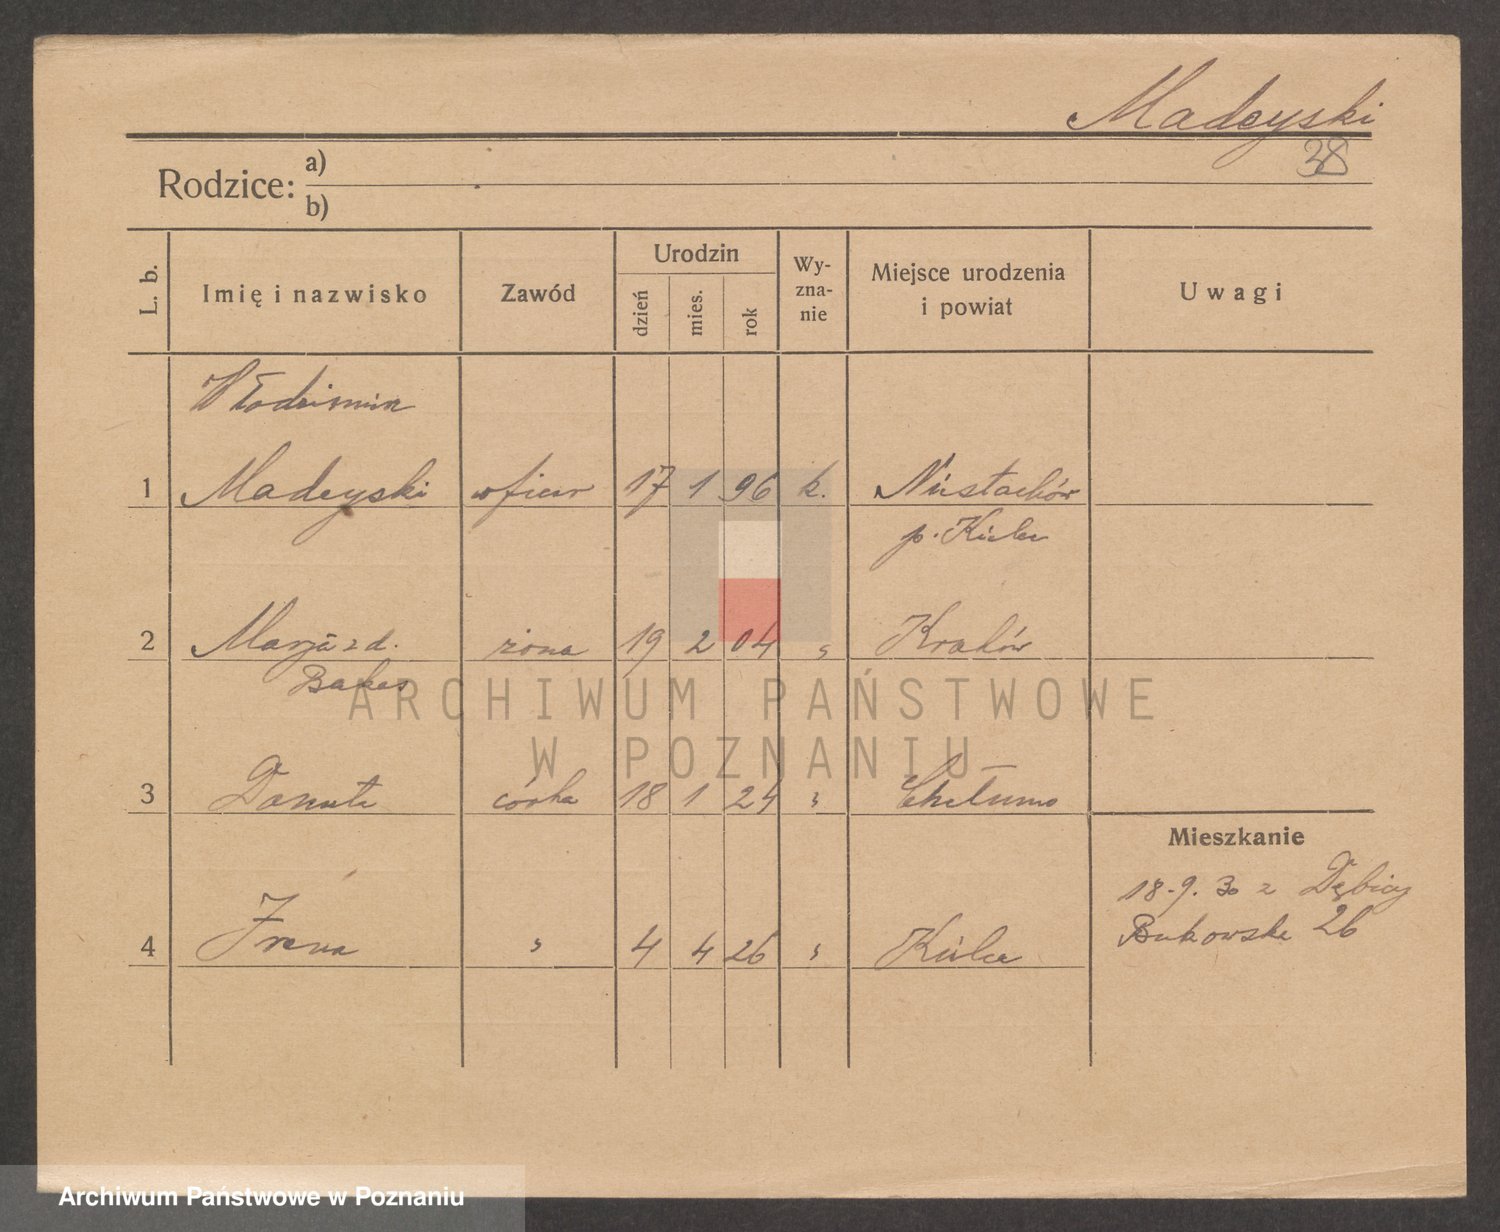 Madeyski
38
Rodzice: a)
b)
L. b.
Imię i nazwisko
Zawód
Urodzin
dzień
mies.
rok
Wy-
zna-
nie
Miejsce urodzenia
i powiat
Uwagi
Włodzimierz
1 Madeyski oficer 17 1 96 k.
p. Kielce
2 Marja z d. żona 19 2 04 " Kraków
Bakes
3 Danuta córka 18 1 24 " Chełmno
Mieszkanie
18-9. 30 z Dębicy
Bukowska 26
4 Irena " 4 4 26 " Kielce
ARCHIWUM PAŃSTWOWE
W POZNANIU
Archiwum Państwowe w Poznaniu